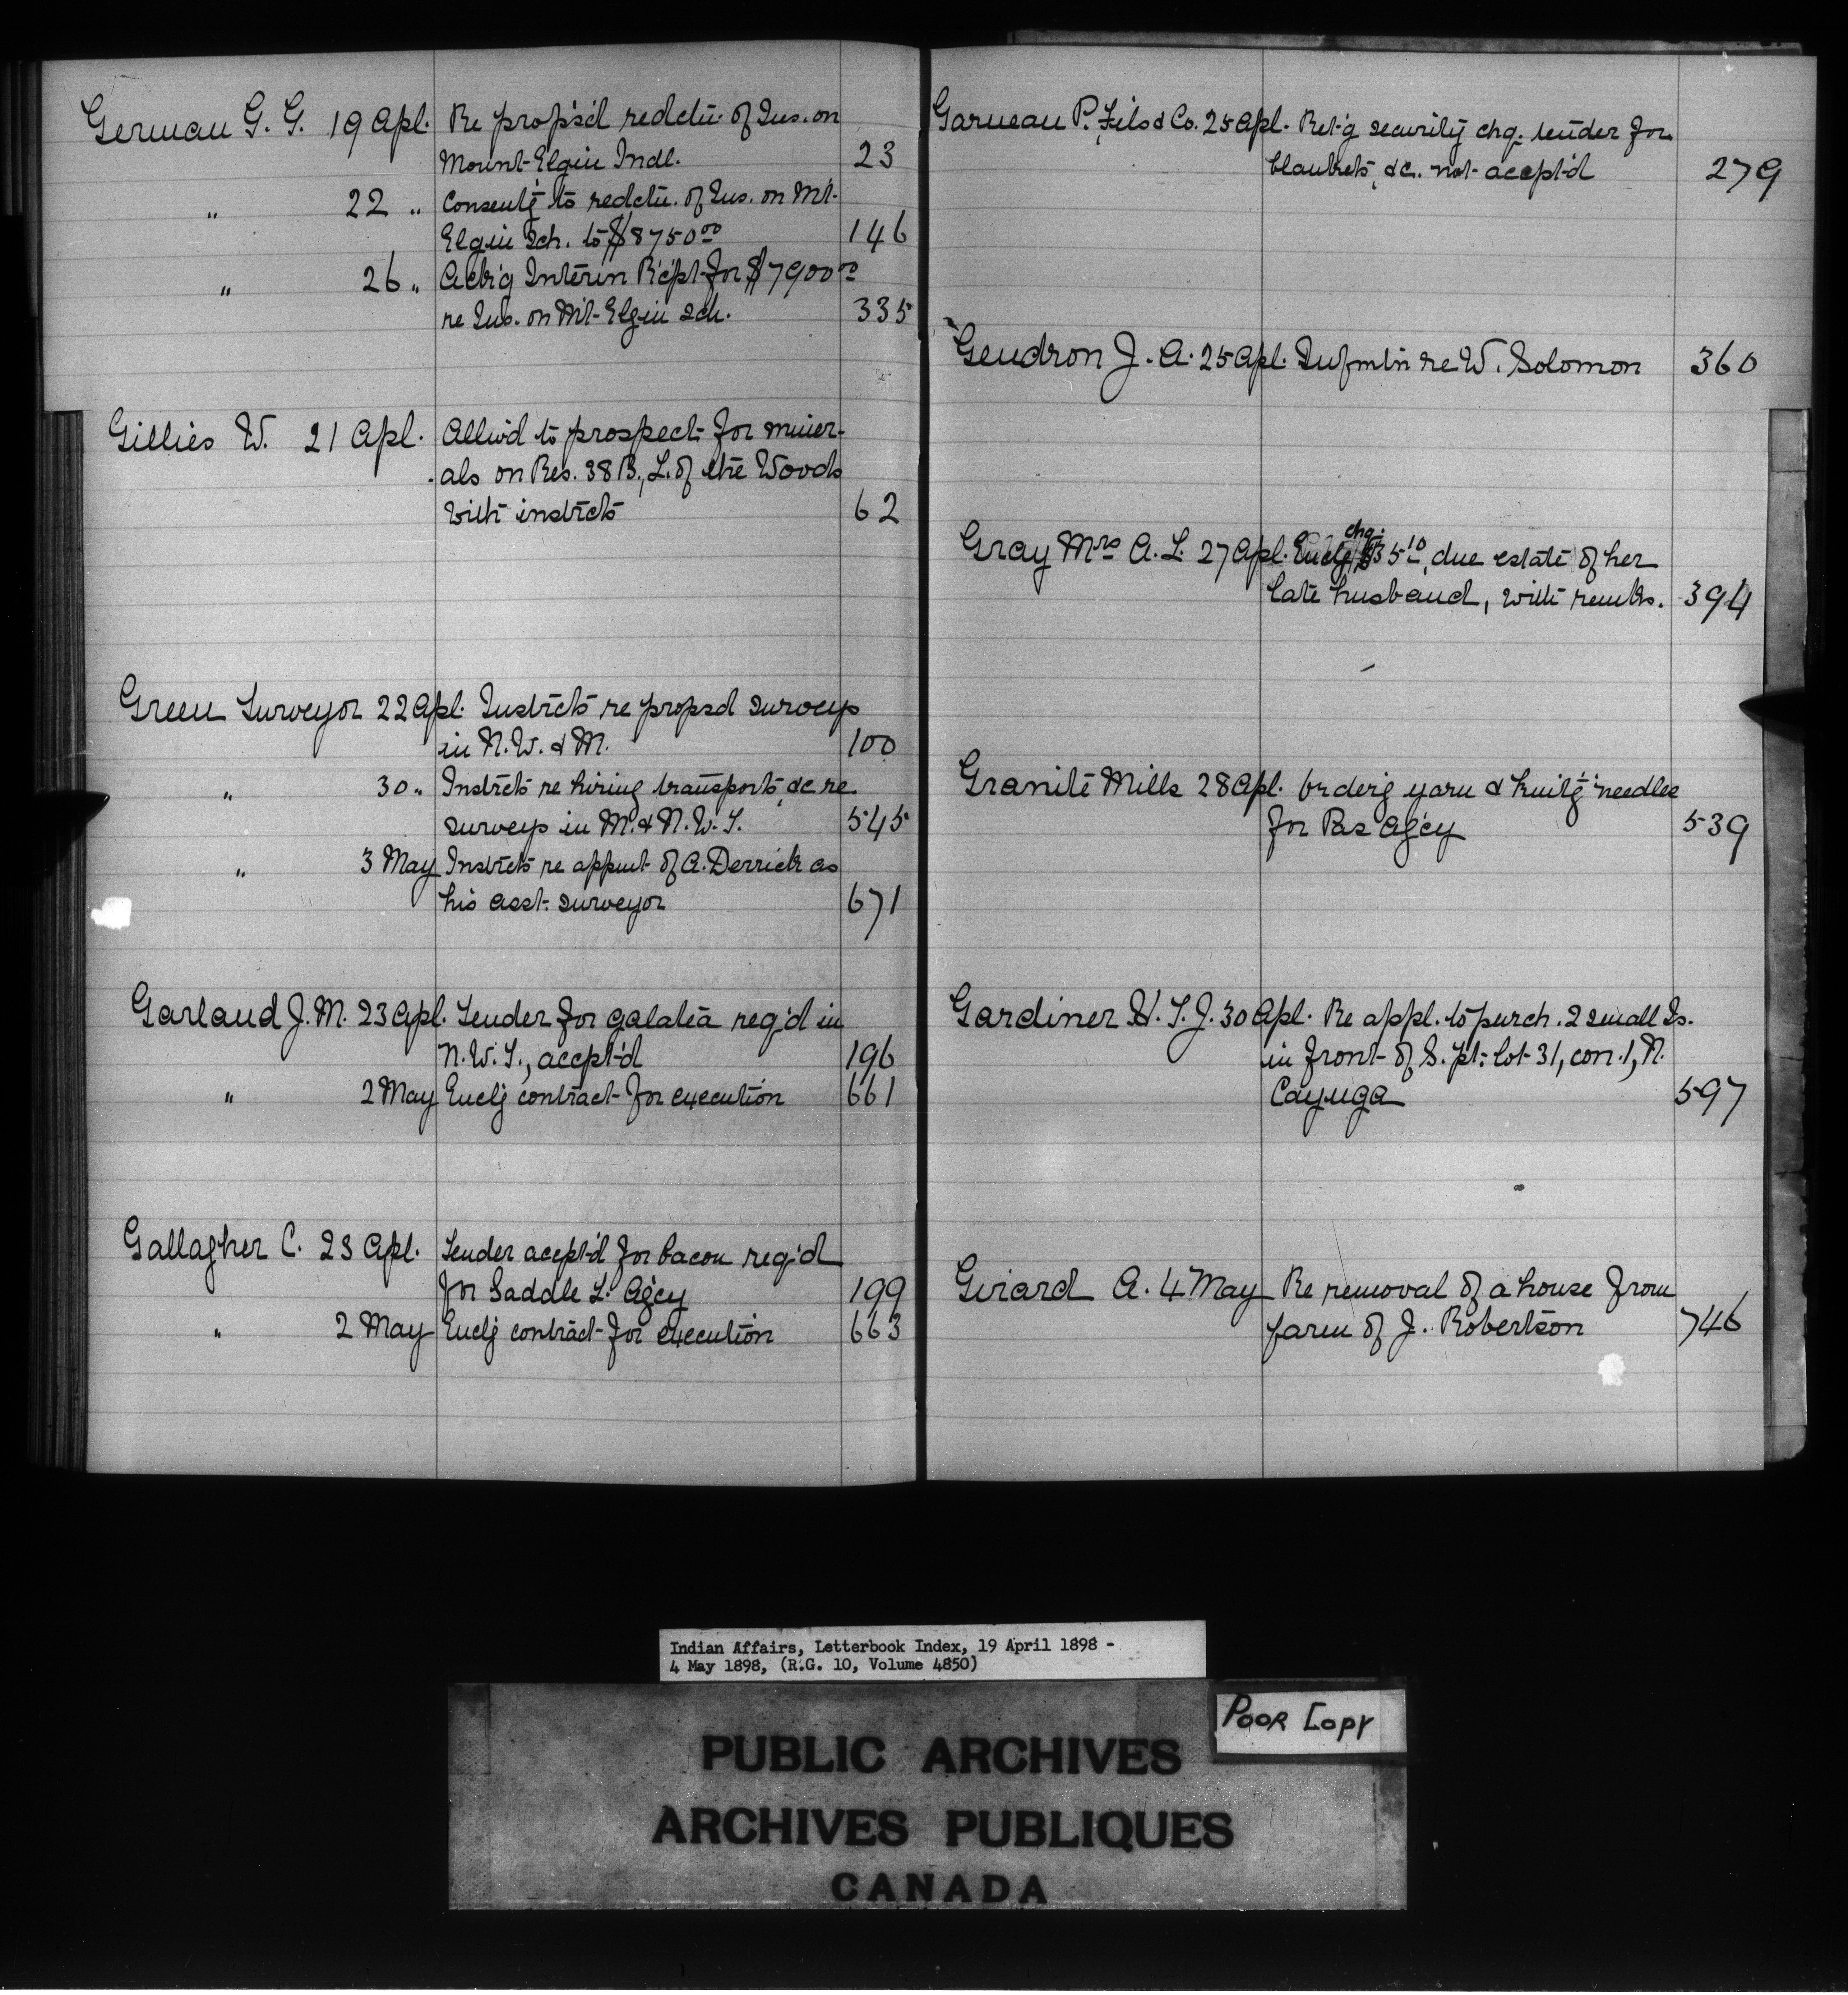 German G. G. 19 Apl. Re prop's'd redctn. of Ins. on
Mount Elgin Indl. 23
" 22 " Consentg to redctn. of Ins. on Mt.
Elgin Sch. to $8750.00 146
" 26 " Ack'g Interin R'c'pt for $7900.00
re Ins. on Mt. Elgin Sch. 335
Gillies W. 21 Apl. Allw'd to prospect for miner-
als on Res. 38B, L. of the Woods
with instrcts 62
Green Surveyor 22 Apl. Instrcts re propsd surveys
in N.W. & M. 100
" 30 " Instrcts re hiring transports, &c re
surveys in M. & N.W.T. 545
" 3 May Instrcts re appmt of A. Derrick as
his asst. surveyor 671
Garland J. M. 23 Apl. Tender for galatea req'd in
N.W.T., accpt'd 196
" 2 May Enclg contract for execution 661
Gallagher C. 23 Apl. Tender acept'd for bacon req'd
for Saddle L. Ag'cy 199
" 2 May Enclg contract for execution 663
Garneau P. Fils & Co. 25 Apl. Ret'g security chq. tender for
blankets, &c. not accept'd 279
Gendron J. A. 25 Apl. Infmtn re W. Solomon 360
Gray Mrs A. L. 27 Apl. Enclg chq. $35.10, due estate of her
late husband, with remks. 394
Granite Mills 28 Apl. Orderg yarn & knitg needles
for Pas Ag'cy 539
Gardiner H. T. J. 30 Apl. Re appl. to purch. 2 small Is.
in front of S. pt. lot 31, con. 1, N.
Cayuga 597
Girard A. 4 May Re removal of a house from
farm of J. Robertson 746
Indian Affairs, Letterbook Index, 19 April 1898 -
4 May 1898, (R.G. 10, Volume 4850)
POOR COPY
PUBLIC ARCHIVES
ARCHIVES PUBLIQUES
CANADA